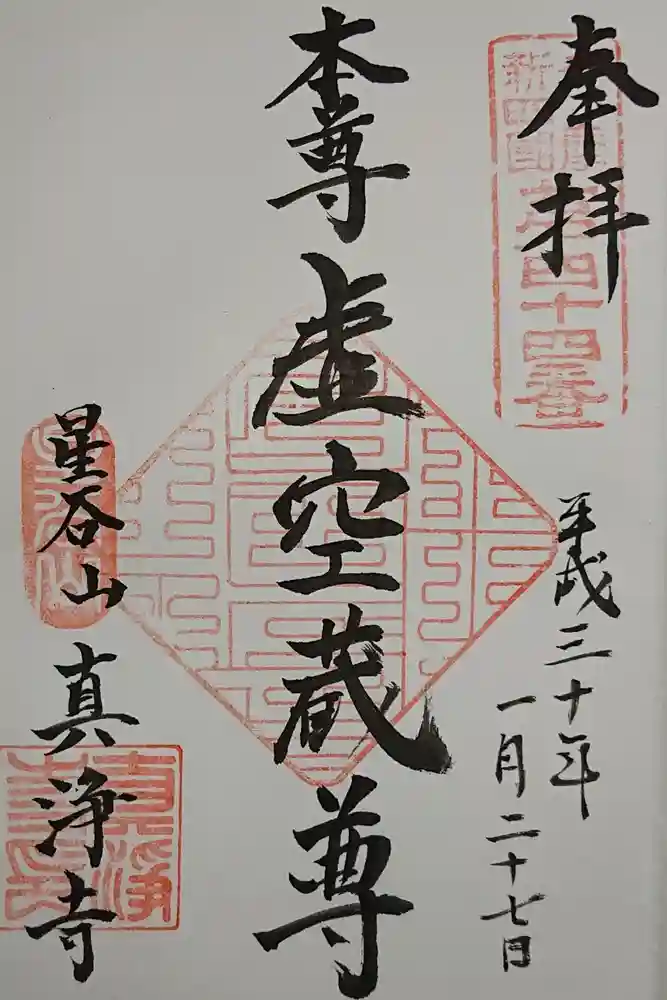 奉拝
新四国
第四十四番
平成三十年
一月二十七日
本尊 虚空蔵尊
星谷山
真浄寺